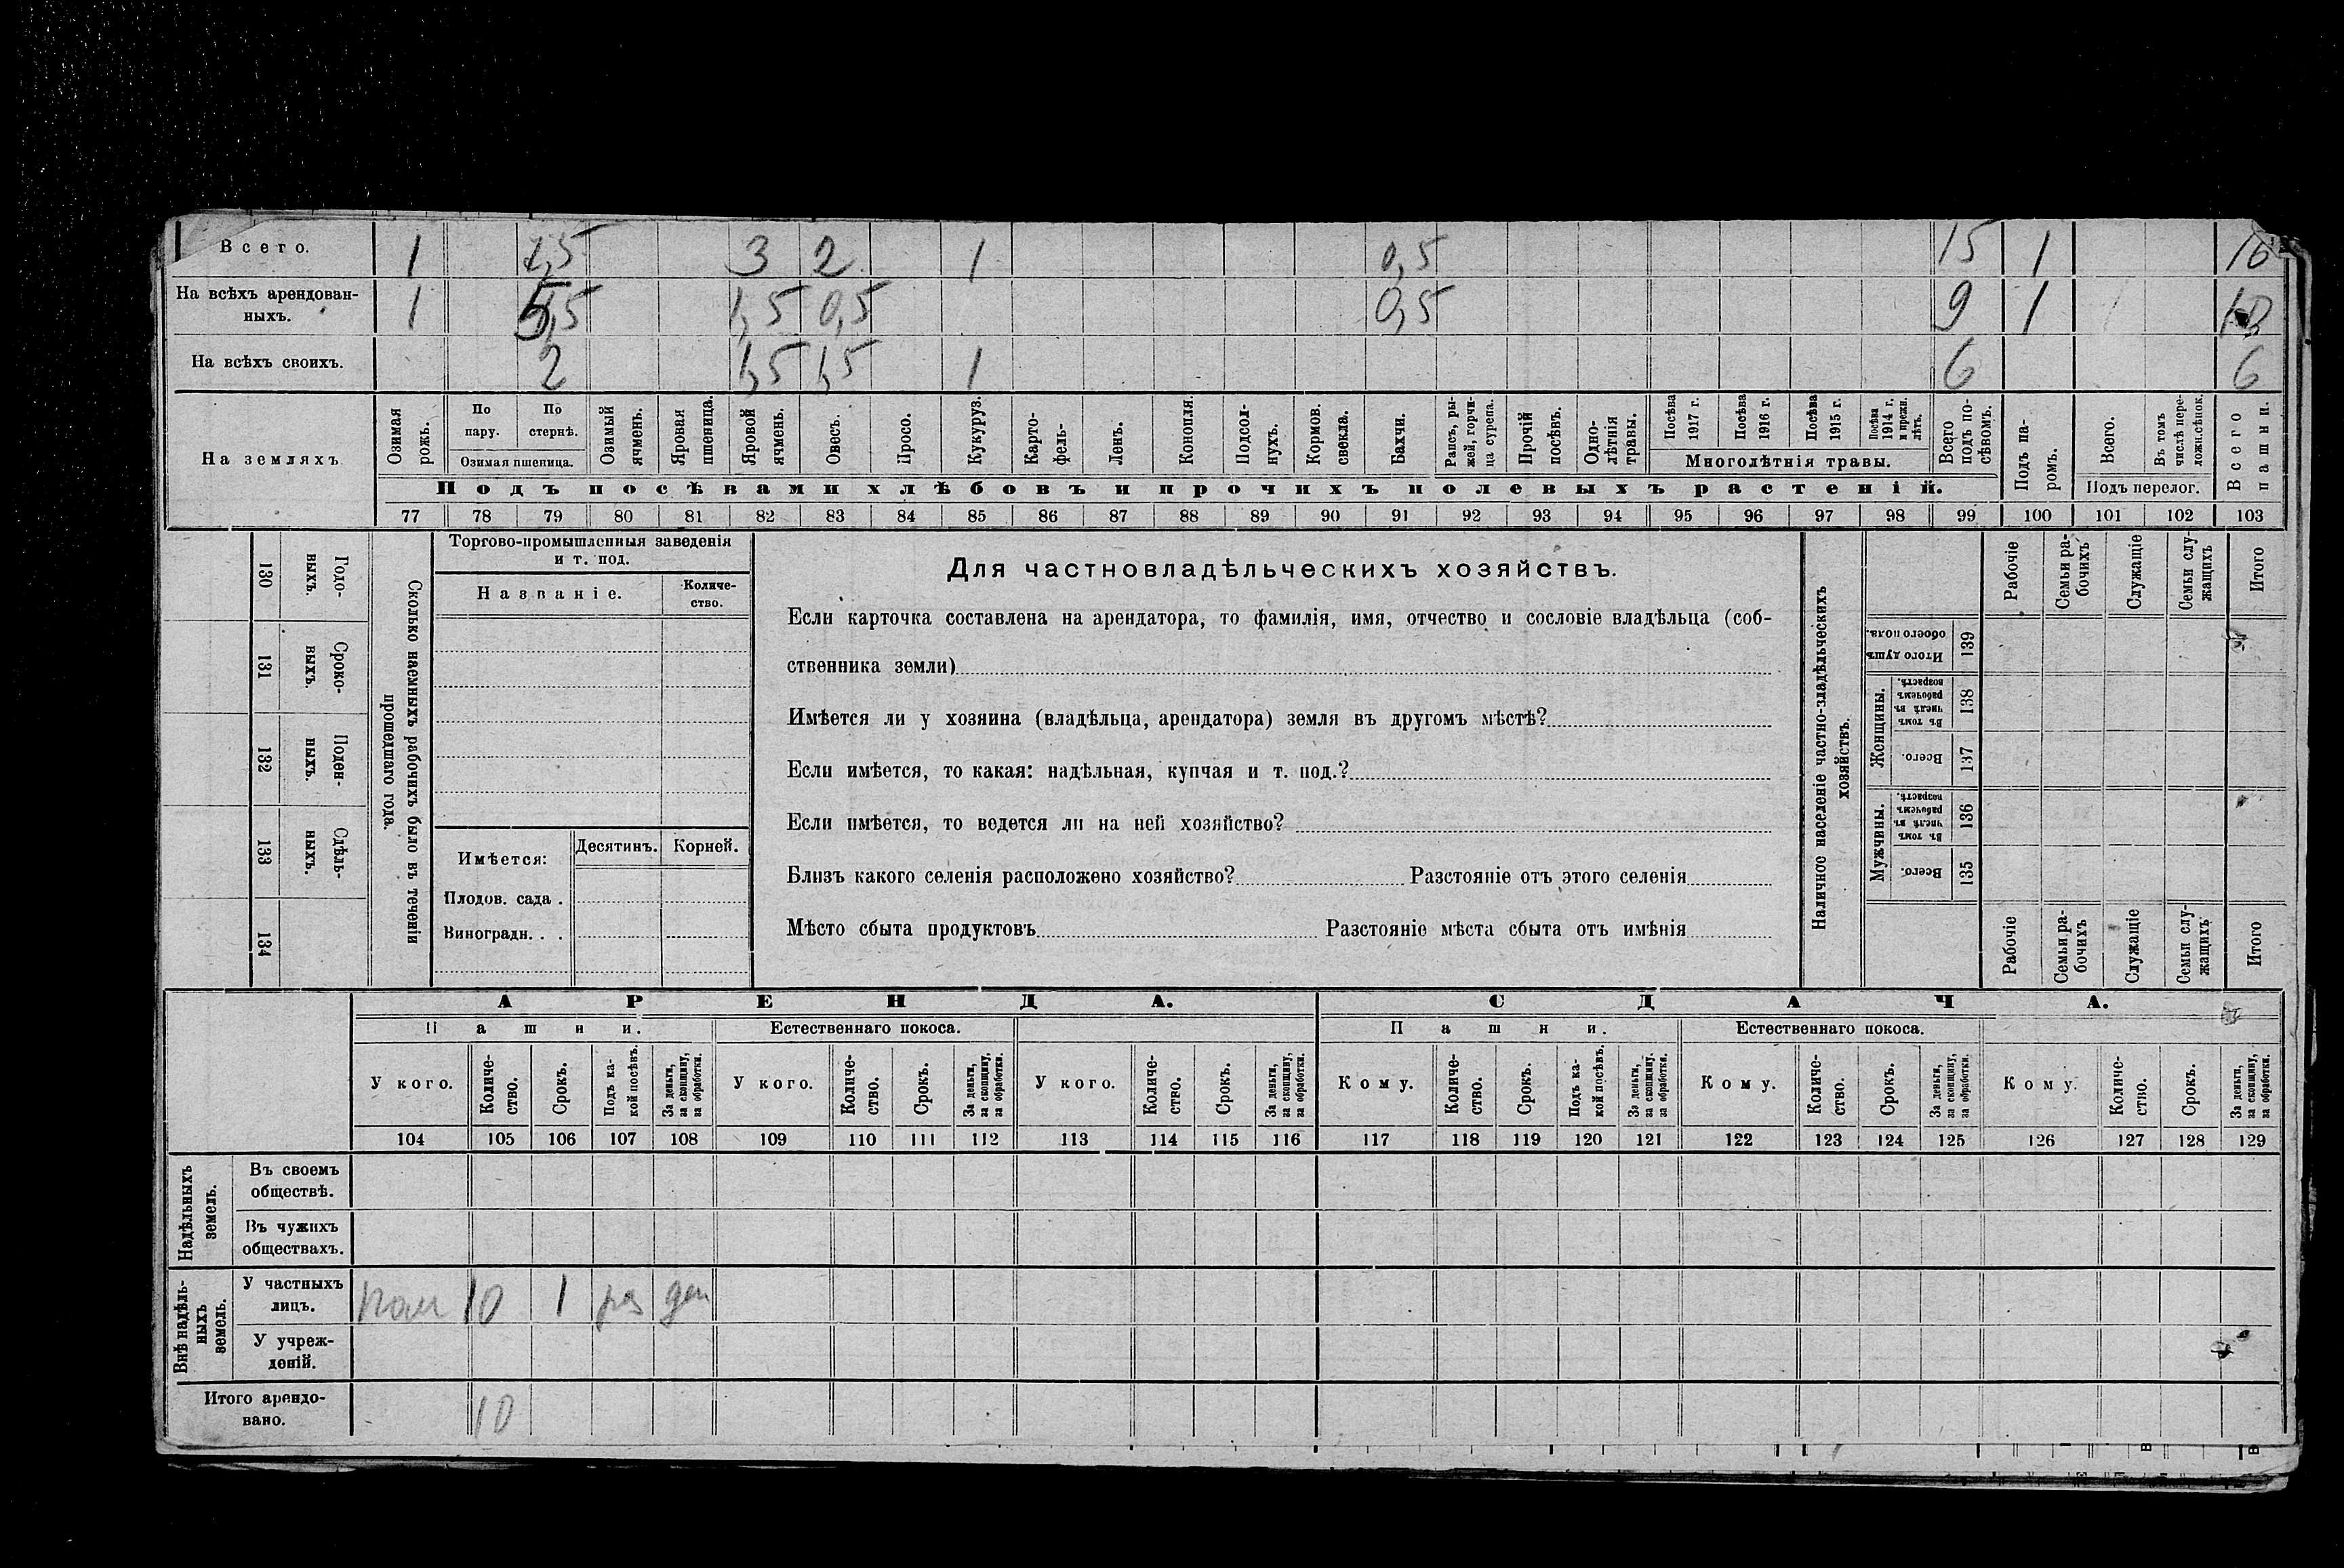 Всего. 1 7,5 3 2 1 0,5 15 1 16
На всѣхъ арендован-
ныхъ. 1 5,5 1,5 0,5 0,5 9 1
На всѣхъ своихъ. 2 1,5 1,5 1 6 6
На земляхъ
Озимая
рожь.
По
пару.
По
стернѣ.
Озимая пшеница.
Озимый
ячмень.
Яровая
пшеница.
Яровой
ячмень.
Овесъ.
Просо.
Кукуруз.
Карто-
фель-
Ленъ.
Конопля.
Подсол-
нухъ.
Кормов.
свекла.
Бахчи.
Рапсъ, ры-
жей, горчи-
ца сурепа.
Прочій
посѣвъ.
Одно-
лѣтнія
травы.
Посѣва
1917 г.
Посѣва
1916 г.
Посѣва
1915 г.
Посѣва
1914 г.
и прежн.
лѣтъ.
Многолѣтнія травы.
Всего
подъ по-
сѣвомъ.
Подъ па-
ромъ.
Всего.
Въ томъ
числѣ пере-
ложн.сѣнок.
Подъ перелог.
Всего
пашни.
Подъ посѣвами хлѣбовъ и прочихъ полевыхъ растеній.
77 78 79 80 81 82 83 84 85 86 87 88 89 90 91 92 93 94 95 96 97 98 99 100 101 102 103
130
Годо-
ныхъ.
131
Сроко-
выхъ.
132
Поден-
ныхъ.
133
Сдѣль-
ныхъ.
134
Сколько наемныхъ рабочихъ было въ теченіи
прошедшаго года.
Торгово-промышленныя заведенія
и т. под.
Названіе.
Количе-
ство.
Имѣется:
Десятинъ.
Корней.
Плодов. сада .
Виноградн. . .
Для частновладѣльческихъ хозяйствъ.
Если карточка составлена на арендатора, то фамилія, имя, отчество и сословіе владѣльца (соб-
ственника земли)
Имѣется ли у хозяина (владѣльца, арендатора) земля въ другомъ мѣстѣ?
Если имѣется, то какая: надѣльная, купчая и т. под.?
Если имѣется, то ведется ли на ней хозяйство?
Близъ какого селенія расположено хозяйство? Разстояніе отъ этого селенія
Мѣсто сбыта продуктовъ Разстояніе мѣста сбыта отъ имѣнія
Наличное населеніе частно-владѣльческихъ
хозяйствъ.
Рабочіе
Семьи ра-
бочихъ
Служащіе
Семьи слу-
жащихъ
Итого
Итого душъ
обоего пола.
139
Женщины.
Въ томъ
числѣ въ
рабочемъ
возрастѣ.
138
Всего.
137
Мужчины.
Въ томъ
числѣ въ
рабочемъ
возрастѣ.
136
Всего.
135
Рабочіе
Семьи ра-
бочихъ
Служащіе
Семьи слу-
жащихъ
Итого
АРЕНДА. СДАЧА.
Пашни. Естественнаго покоса. Пашни. Естественнаго покоса.
У кого.
Количе-
ство.
Срокъ.
Подъ ка-
кой посѣвъ.
За деньги,
за скопщину,
за обработки.
У кого.
Количе-
ство.
Срокъ.
За деньги,
за скопщину,
за обработки.
У кого.
Количе-
ство.
Срокъ.
За деньги,
за скопщину,
за обработки.
Кому.
Количе-
ство.
Срокъ.
Подъ ка-
кой посѣвъ.
За деньги,
за скопщину.
за обработки.
Кому.
Количе-
ство.
Срокъ.
За деньги,
за скопщину,
за обработки.
Кому.
Количе-
ство.
Срокъ.
За деньги,
за скопщину,
за обработки.
104 105 106 107 108 109 110 111 112 113 114 115 116 117 118 119 120 121 122 123 124 125 126 127 128 129
Надѣльныхъ
земель.
Въ своемъ
обществѣ.
Въ чужихъ
обществахъ.
Внѣ надѣль-
ныхъ
земель.
У частныхъ
лицъ. 10 1 ден
У учреж-
деній.
Итого арендо-
вано. 10